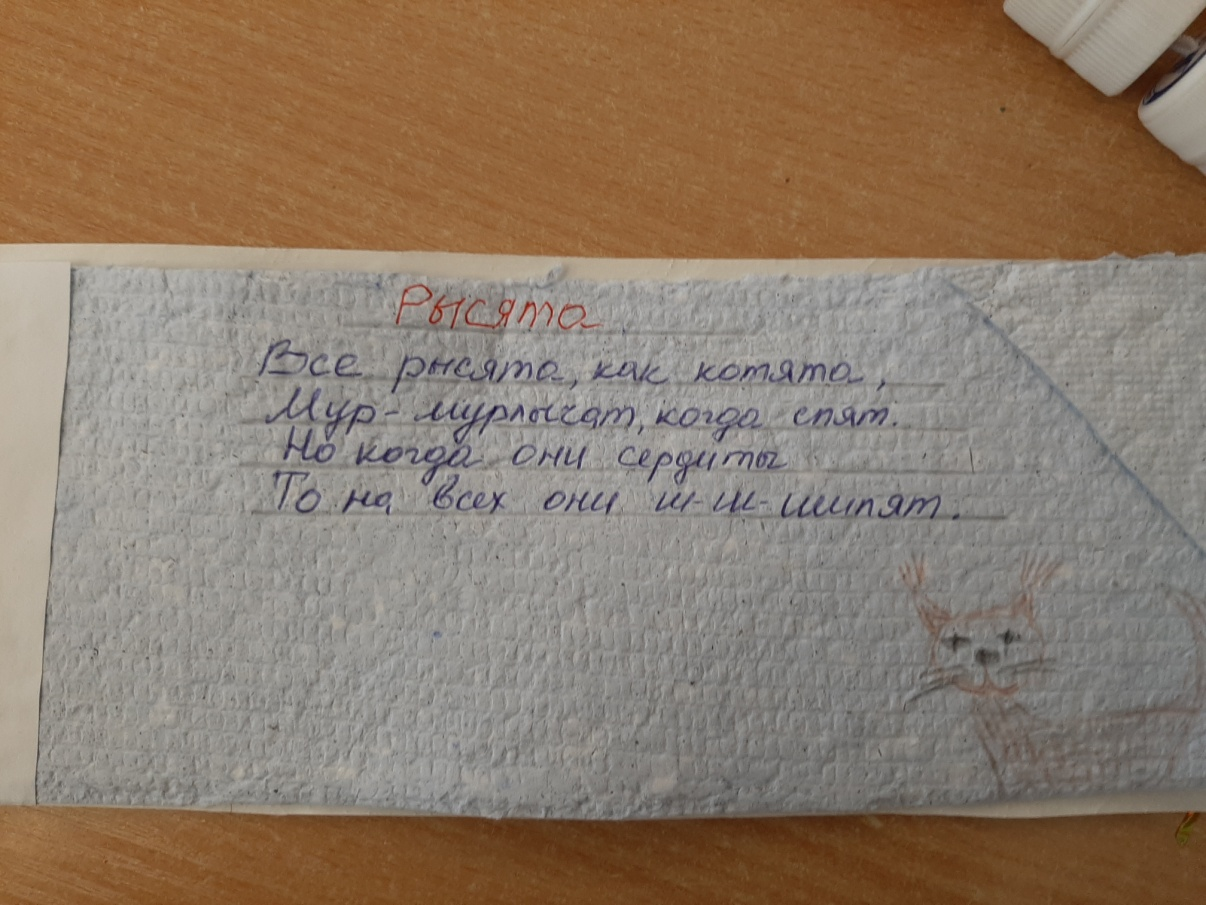 Рысята
Все рысята, как котята,
Мур-мурлычат, когда спят.
Но когда они сердиты
То на всех они ш-ш-шипят.